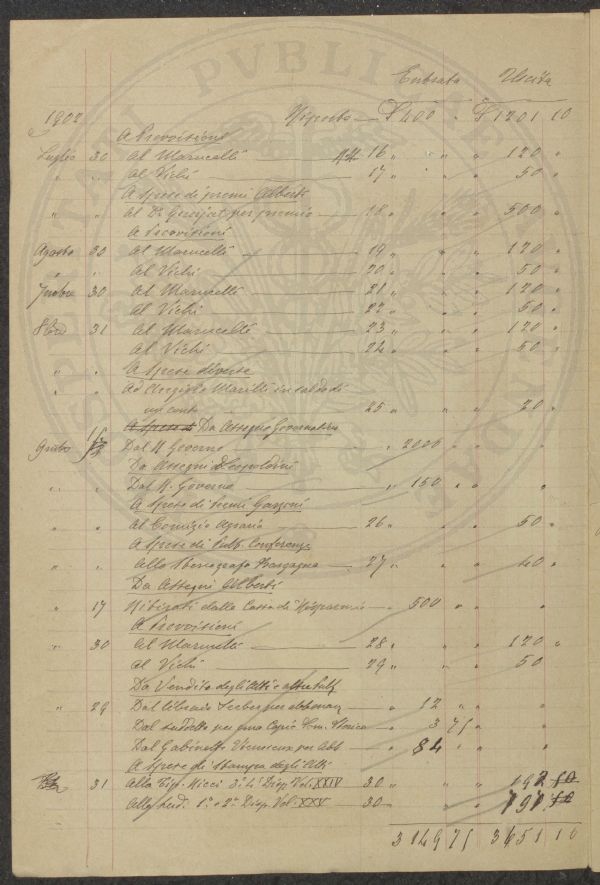 Entrata Uscita
1902 Riporto — £ 400 „ £ 1201 10
A Provvisioni
Luglio 30 Al Marucelli — 16 „ „ „ 120 „
„ „ Al Vichi — 17 „ „ „ 50 „
A Spese di premi Alberti
„ „ Al Dr. per premio — 18 „ „ „ 500 „
A Provvisioni
Agosto 30 Al Marucelli — 19 „ „ „ 120 „
„ „ Al Vichi — 20 „ „ „ 50 „
30 Al Marucelli — 21 „ „ „ 120 „
Al Vichi — 22 „ „ „ 50 „
31 Al Marucelli — 23 „ „ „ 120 „
Al Vichi — 24 „ „ „ 50 „
„ „ A Spese diverse
„ „ Ad in saldo di
un conto 25 „ „ „ 20 „
A Spese Da Assegno Governativo
Dal R. Governo — „ 2000 „ „ „
Da Assegni Leopoldini
„ „ Dal R. Governo — „ 150 „ „ „
A Spese di Premi Gazzeri
„ „ Al Comizio Agrario — 26 „ „ „ 50 „
A Spese di Pubb. Conferenze
„ „ Allo Stenografo — 27 „ „ „ 40 „
Da Assegni Alberti
„ 17 Ritirati dalla Cassa di Risparmio — 500 „ „ „
A Provvisioni
„ 30 Al Marucelli — 28 „ „ „ 120 „
Al Vichi — 29 „ „ „ 50
Da Vendita degli Atti e altre Pubb.
„ 29 Dal libraio Seeber per abbonam. — „ 12 „ „ „
Dal suddetto per una Copia Mem. Storica — „ 3 75 „ „
Dal Gabinetto Vieusseux per Abb. — „ 84 „ „ „
A Spese di Stampa degli Atti
31 Alla Tip. Ricci 3a 4a Disp. Vol. XXIV 30 „ „ „ 192
Alla sud. 1a e 2a Disp. Vol. XXV — 30 — „ „
3149 75 3651 10